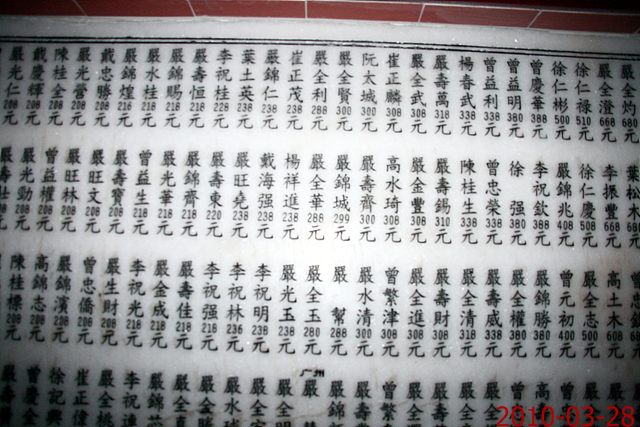 嚴全灼680元
嚴全澄668元
徐仁祿510元
徐仁彬500元
曾慶華388元
曾益明380元
曾益利338元
楊春武338元
嚴壽萬318元
嚴全武308元
崔正麟308元
阮太城300元
嚴全賢300元
嚴全利288元
崔正茂238元
嚴錦仁238元
葉土英238元
李祝桂228元
嚴壽恒218元
嚴錦賜218元
嚴水桂218元
嚴錦煌216元
戴忠勝208元
嚴光營208元
陳桂全208元
戴慶輝208元
嚴光仁208元
葉松木680元
李振豐668元
徐仁慶508元
嚴錦兆408元
李祝欽388元
徐强380元
曾忠榮338元
陳桂生338元
嚴壽錫310元
嚴金豐308元
高水琦308元
嚴壽齊300元
嚴錦城299元
嚴全華288元
楊祥進238元
戴海强238元
嚴旺堯238元
嚴壽東220元
嚴錦齊218元
嚴光華218元
曾益生218元
嚴壽寶208元
嚴旺文208元
嚴旺林208元
曾益權208元
嚴光勁208元
嚴壽壯208元
高土木608元
嚴全志500元
曾元初400元
嚴錦勝380元
嚴全權380元
嚴壽威338元
嚴全清318元
嚴壽財308元
嚴全進308元
曾繁津308元
嚴水清300元
嚴幫288元
嚴全玉280元
嚴光玉238元
李祝明238元
李祝林236元
李祝强218元
嚴壽佳218元
嚴金成218元
李祝光218元
嚴生財208元
曾忠僑208元
嚴錦濱208元
高錦志208元
陳桂標208元
广州
2010-03-28